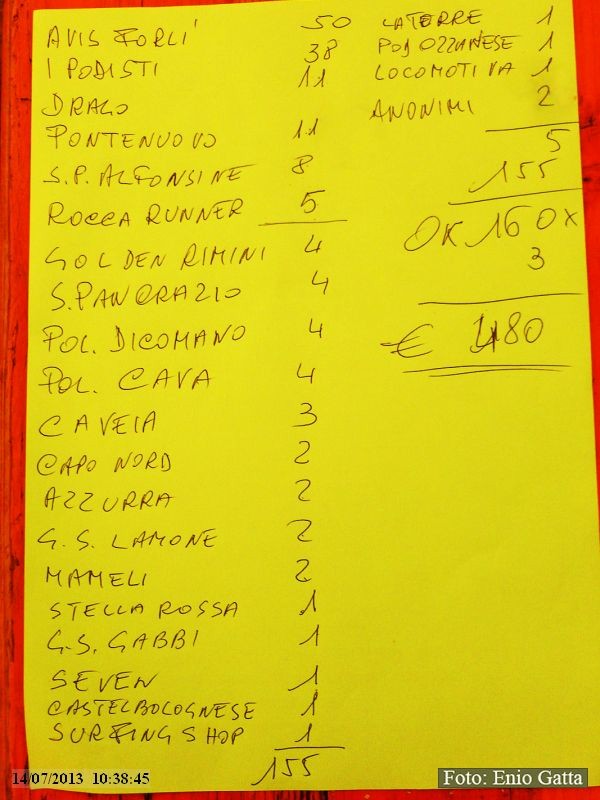 AVIS FORLI' 50
I PODISTI 38
DRAGO 11
PONTENUOVO 11
S.P. ALFONSINE 8
ROCCA RUNNER 5
GOLDEN RIMINI 4
S. PANCRAZIO 4
POL. DICOMANO 4
POL. CAVA 4
CAVEIA 3
CAPO NORD 2
AZZURRA 2
G.S. LAMONE 2
MAMELI 2
STELLA ROSSA 1
G.S. GABBI 1
SEVEN 1
CASTELBOLOGNESE 1
SURFING SHOP 1
155
LATERRE 1
POD OZZANESE 1
LOCOMOTIVA 1
ANONIMI 2
5
155
OK 160 X
3
€ 480
14/07/2013 10:38:45
Foto: Enio Gatta